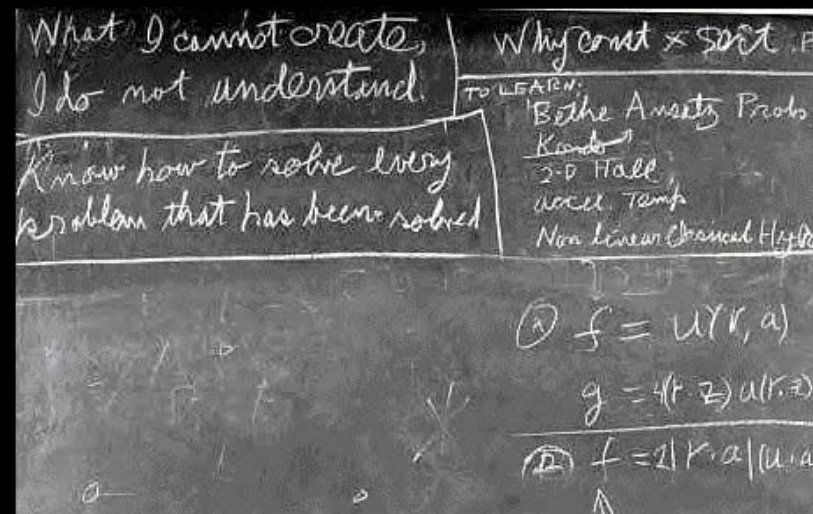 What I cannot create,
I do not understand.
Know how to solve every
problem that has been solved
Why const × sort .P
TO LEARN:
Bethe Ansatz Probs
Kondo
2-D Hall
accel. Temp
Non linear Classical Hydro
Ⓐ f = u(r, a)
g = 4(r·z) u(r.z)
f = 2|r·a|(u.a